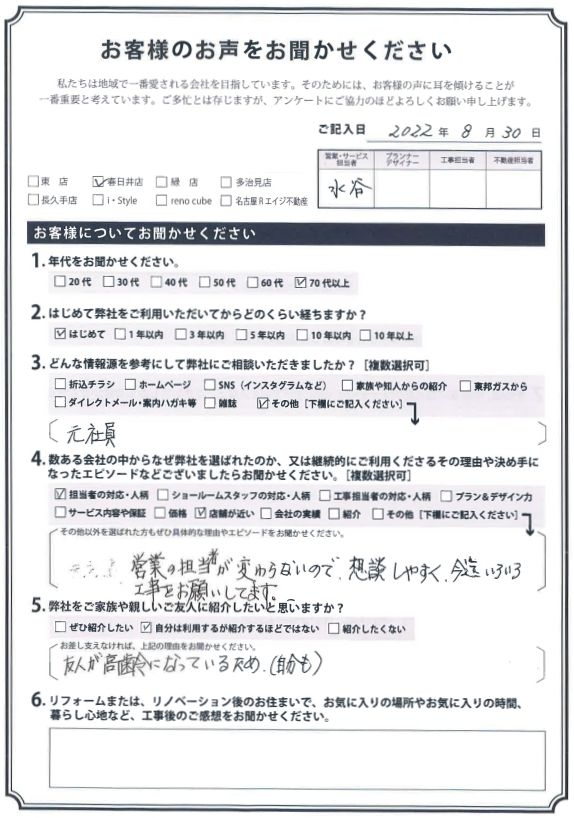 お客様のお声をお聞かせください
私たちは地域で一番愛される会社を目指しています。そのためには、お客様の声に耳を傾けることが
一番重要と考えています。ご多忙とは存じますが、アンケートにご協力のほどよろしくお願い申し上げます。
ご記入日 2022 年 8 月 30 日
営業・サービス担当者 プランナーデザイナー 工事担当者 不動産担当者
水谷
□東 店 ☑春日井店 □緑 店 □多治見店
□長久手店 □i・Style □reno cube □名古屋Rエイジ不動産
お客様についてお聞かせください
1. 年代をお聞かせください。
□20代 □30代 □40代 □50代 □60代 ☑70代以上
2. はじめて弊社をご利用いただいてからどのくらい経ちますか？
☑はじめて □1年以内 □3年以内 □5年以内 □10年以内 □10年以上
3. どんな情報源を参考にして弊社にご相談いただきましたか？［複数選択可］
□折込チラシ □ホームページ □SNS（インスタグラムなど） □家族や知人からの紹介 □東邦ガスから
□ダイレクトメール・案内ハガキ等 □雑誌 ☑その他［下欄にご記入ください］
元社員
4. 数ある会社の中からなぜ弊社を選ばれたのか、又は継続的にご利用くださるその理由や決め手に
なったエピソードなどございましたらお聞かせください。［複数選択可］
☑担当者の対応・人柄 □ショールームスタッフの対応・人柄 □工事担当者の対応・人柄 □プラン＆デザイン力
□サービス内容や保証 □価格 ☑店舗が近い □会社の実績 □紹介 □その他［下欄にご記入ください］
その他以外を選ばれた方もぜひ具体的な理由やエピソードをお聞かせください。
営業の担当者が変わらないので、想談しやすく、今迄いろいろ
工事をお願いしてます。
5. 弊社をご家族や親しいご友人に紹介したいと思いますか？
□ぜひ紹介したい ☑自分は利用するが紹介するほどではない □紹介したくない
お差し支えなければ、上記の理由をお聞かせください。
友人が高齢になっているため。(自分も)
6. リフォームまたは、リノベーション後のお住まいで、お気に入りの場所やお気に入りの時間、
暮らし心地など、工事後のご感想をお聞かせください。